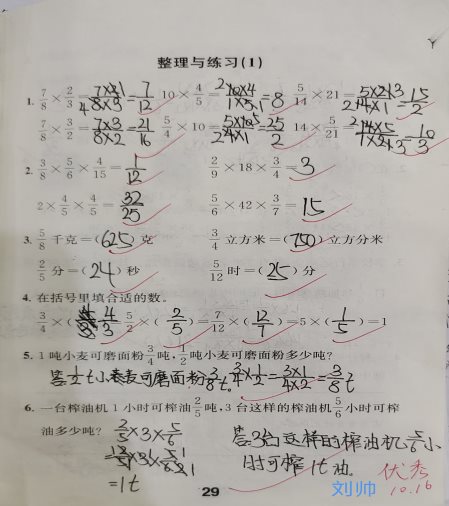 整理与练习(1)
1. 7/8 × 2/3 = 7×2/8×3 = 7/12 10 × 4/5 = 10×4/1×5 = 8 5/14 × 21 = 5×21/14×1 = 15/2
7/8 × 3/2 = 7×3/8×2 = 21/16 5/4 × 10 = 5×10/4×1 = 25/2 14 × 5/21 = 14×5/1×21 = 10/3
2. 3/8 × 5/6 × 4/15 = 1/12 2/9 × 18 × 3/4 = 3
2 × 4/5 × 4/5 = 32/25 5/6 × 42 × 3/7 = 15
3. 5/8 千克 = (625) 克 3/4 立方米 = (750) 立方分米
2/5 分 = (24) 秒 5/12 时 = (25) 分
4. 在括号里填合适的数。
3/4 × (4/3) 5/2 × (2/5) = 7/12 × (12/7) = 5 × (1/5) = 1
5. 1 吨小麦可磨面粉 3/4 吨, 1/2 吨小麦可磨面粉多少吨?
答1/2t小麦可磨面粉3/8t。 3/4 × 1/2 = 3×1/4×2 = 3/8 t
6. 一台榨油机 1 小时可榨油 2/5 吨, 3 台这样的榨油机 5/6 小时可榨
油多少吨? 2/5 × 3 × 5/6
答3台这样的榨油机5/6小
时可榨1t油。
=1t
优秀
10.16
29
刘帅